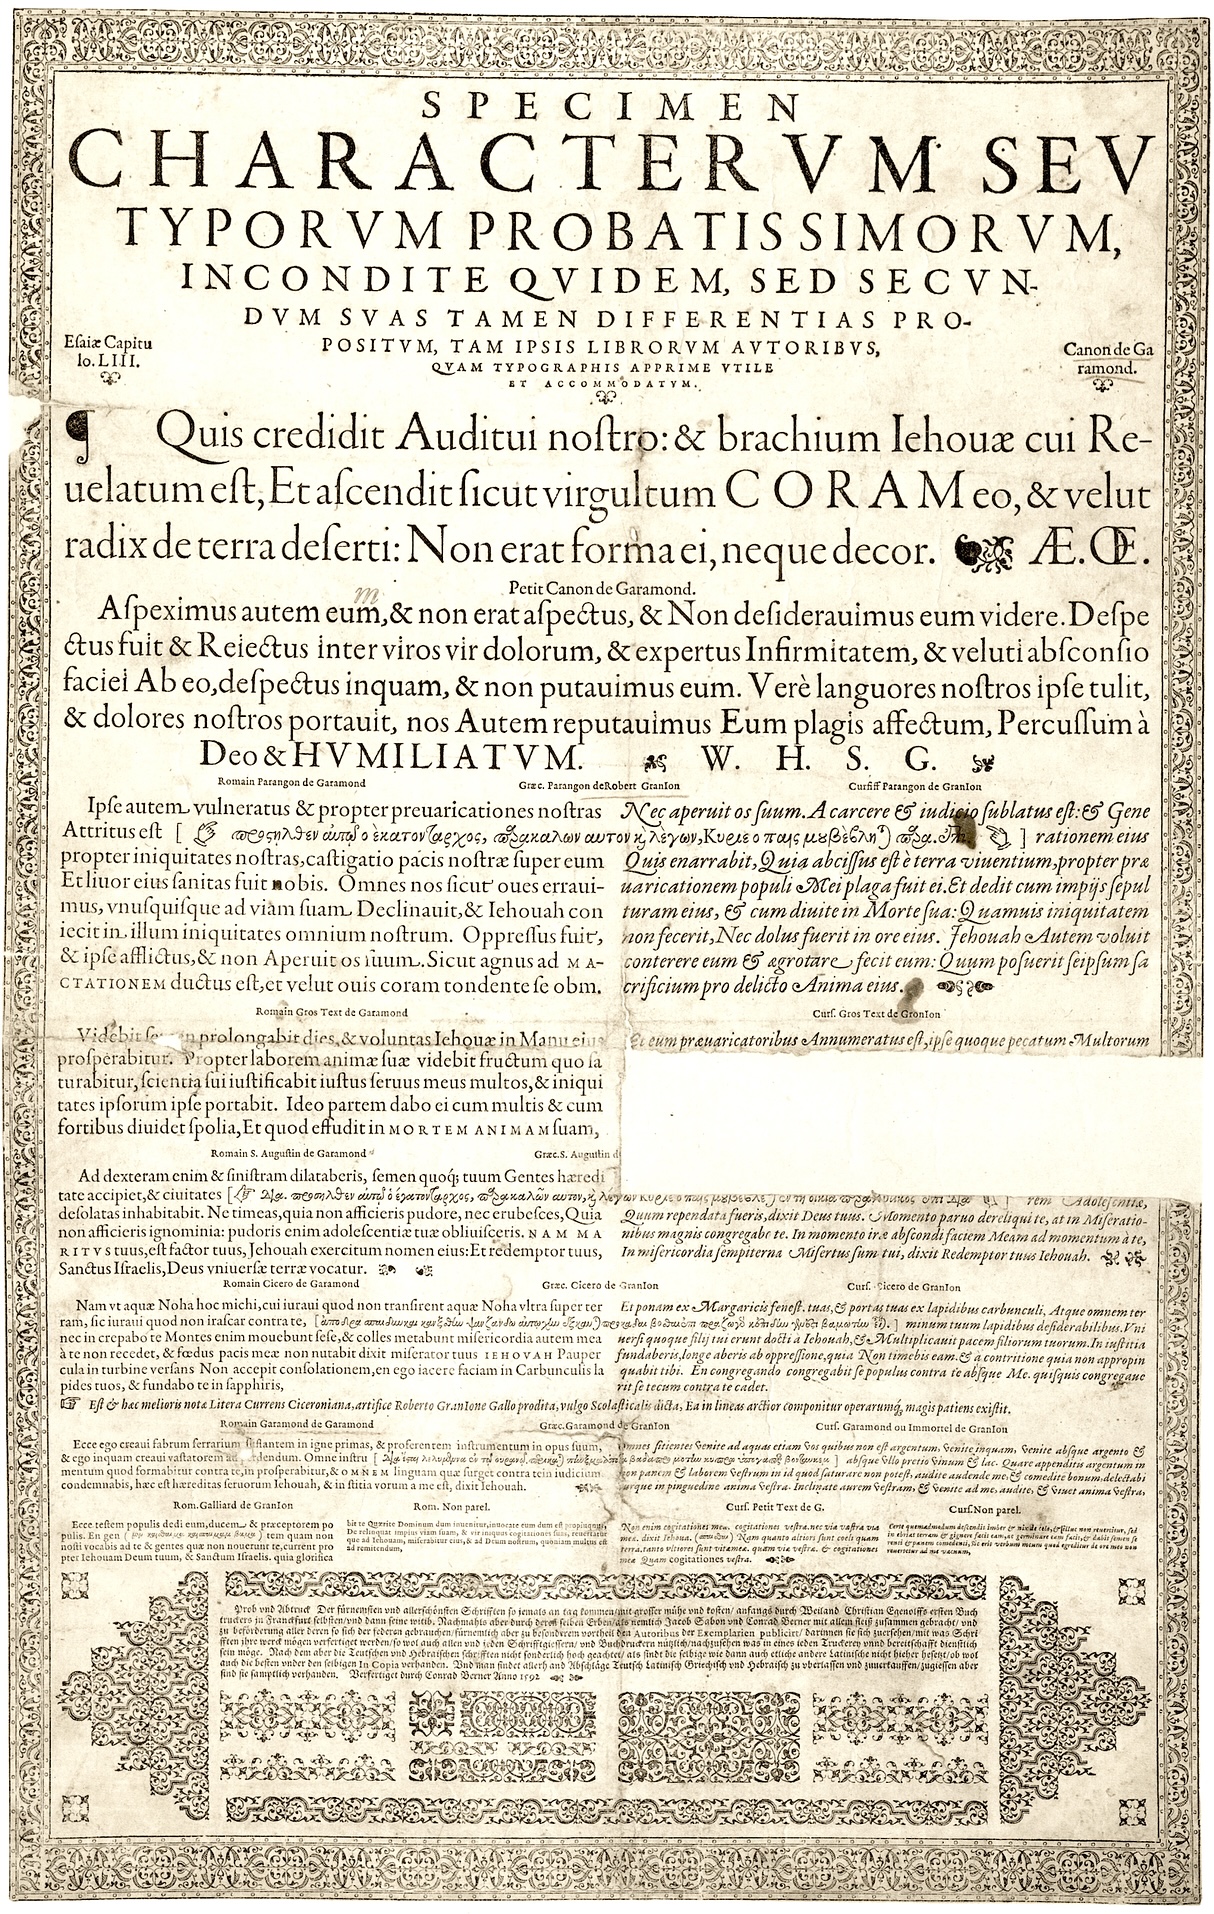 SPECIMEN
CHARACTERVM SEV
TYPORVM PROBATISSIMORVM,
INCONDITE QVIDEM, SED SECVN-
DVM SVAS TAMEN DIFFERENTIAS PRO-
POSITVM, TAM IPSIS LIBRORVM AVTORIBVS,
QVAM TYPOGRAPHIS APPRIME VTILE
ET ACCOMMODATVM.
Eſaiæ Capitu
lo. LIII.
Canon de Ga
ramond.
¶ Quis credidit Auditui noſtro: & brachium Iehouæ cui Re-
uelatum eſt, Et aſcendit ſicut virgultum CORAM eo, & velut
radix de terra deſerti: Non erat forma ei, neque decor. ❧ Æ. Œ.
Petit Canon de Garamond.
Aſpeximus autem eum, & non erat aſpectus, & Non deſiderauimus eum videre. Deſpe
ctus fuit & Reiectus inter viros vir dolorum, & expertus Infirmitatem, & veluti abſconſio
faciei Ab eo, deſpectus inquam, & non putauimus eum. Verè languores noſtros ipſe tulit,
& dolores noſtros portauit, nos Autem reputauimus Eum plagis affectum, Percuſſum à
Deo & HVMILIATVM. ❧ W. H. S. G. ❧
Romain Parangon de Garamond
Ipſe autem vulneratus & propter preuaricationes noſtras
Attritus eſt [
propter iniquitates noſtras, caſtigatio pacis noſtræ ſuper eum
Et liuor eius ſanitas fuit nobis. Omnes nos ſicut oues erraui-
mus, vnuſquiſque ad viam ſuam Declinauit, & Iehouah con
iecit in illum iniquitates omnium noſtrum. Oppreſſus fuit,
& ipſe afflictus, & non Aperuit os ſuum. Sicut agnus ad MA-
CTATIONEM ductus eſt, et velut ouis coram tondente ſe obm.
Græc. Parangon de Robert GranIon
ὁ ἑκατονταρχος,
Curſiff Parangon de GranIon
Nec aperuit os ſuum. A carcere & iudicio ſublatus eſt: & Gene
] rationem eius
Quis enarrabit, Quia abciſſus eſt è terra viuentium, propter præ
uaricationem populi Mei plaga fuit ei. Et dedit cum impijs ſepul
turam eius, & cum diuite in Morte ſua: Quamuis iniquitatem
non fecerit, Nec dolus fuerit in ore eius. Jehouah Autem voluit
conterere eum & ægrotare fecit eum: Quum poſuerit ſeipſum ſa
crificium pro delicto Anima eius.
Romain Gros Text de Garamond
Videbit prolongabit dies, & voluntas Iehouæ in Manu eius
proſperabitur. Propter laborem animæ ſuæ videbit fructum quo ſa
turabitur, ſcientia ſui iuſtificabit iuſtus ſeruus meus multos, & iniqui
tates ipſorum ipſe portabit. Ideo partem dabo ei cum multis & cum
fortibus diuidet ſpolia, Et quod effudit in MORTEM ANIMAM ſuam,
Curſ. Gros Text de GronIon
Et eum præuaricatoribus Annumeratus eſt, ipſe quoque pecatum Multorum
Romain S. Auguſtin de Garamond
Græc. S. Auguſtin
Ad dexteram enim & ſiniſtram dilataberis, ſemen quoq; tuum Gentes hæredi
tate accipiet, & ciuitates [
deſolatas inhabitabit. Ne timeas, quia non afficieris pudore, nec erubeſces, Quia
non afficieris ignominia: pudoris enim adoleſcentiæ tuæ obliuiſceris. NAM MA
RITVS tuus, eſt factor tuus, Jehouah exercitum nomen eius: Et redemptor tuus,
Sanctus Iſraelis, Deus vniuerſæ terræ vocatur.
] rem Adoleſcentiæ,
Quum rependata fueris, dixit Deus tuus. Momento paruo dereliqui te, at in Miſeratio-
nibus magnis congregabo te. In momento iræ abſcondi factem Meam ad momentum à te,
In miſericordia ſempiterna Miſertus ſum tui, dixit Redemptor tuus Iehouah.
Romain Cicero de Garamond
Nam vt aquæ Noha hoc michi, cui iuraui quod non tranſirent aquæ Noha vltra ſuper ter
ram, ſic iuraui quod non iraſcar contra te, [
nec in crepabo te Montes enim mouebunt ſeſe, & colles metabunt miſericordia autem mea
à te non recedet, & fœdus pacis meæ non nutabit dixit miſerator tuus IEHOVAH Pauper
cula in turbine verſans Non accepit conſolationem, en ego iacere faciam in Carbunculis la
pides tuos, & fundabo te in ſapphiris,
Græc. Cicero de GranIon
Curſ. Cicero de GranIon
Et ponam ex Margaricis feneſt. tuas, & portas tuas ex lapidibus carbunculi, Atque omnem ter
] minum tuum lapidibus deſiderabilibus. Vni
uerſi quoque filij tui erunt docti à Iehouah, & Multiplicaui pacem filiorum tuorum. In iuſtitia
fundaberis, longe aberis ab oppreſſione, quia Non timebis eam. & à contritione quia non appropin
quabit tibi. En congregando congregabit ſe populus contra te abſque Me. quiſquis congregaue
rit ſe tecum contra te cadet.
☞ Eſt & hæc melioris notæ Litera Currens Ciceroniana, artifice Roberto GranIone Gallo prodita, vulgo Scolaſticalis dicta, Ea in lineas arctior componitur operarumq; magis patiens exiſtit.
Romain Garamond de Garamond
Ecce ego creaui fabrum ferrarium ſufflantem in igne primas, & proferentem inſtrumentum in opus ſuum,
& ego inquam creaui vaſtatorem ad dendum. Omne inſtru [
mentum quod formabitur contra te, in proſperabitur, & OMNEM linguam quæ ſurget contra te in iudicium
condemnabis, hæc eſt hæreditas ſeruorum Iehouah, & in ſtitia vorum a me eſt, dixit Iehouah.
Græc. Garamond de GranIon
Curſ. Garamond ou Immortel de GranIon
Omnes ſitientes venite ad aquas etiam vos quibus non eſt argentum, venite inquam, venite abſque argento &
] abſque vllo pretio vinum & lac. Quare appenditis argentum in
non panem & laborem veſtrum in id quod ſaturare non poteſt, audite audende me, & comedite bonum, delectabi
turque in pinguedine anima veſtra. Inclinate aurem veſtram, & venite ad me, audite, & viuet anima veſtra,
Rom. Galliard de GranIon
Ecce teſtem populis dedi eum, ducem & præceptorem po
pulis. En gen ( ) tem quam non
noſti vocabis ad te & gentes quæ non nouerunt te, current pro
pter Iehouam Deum tuum, & Sanctum Iſraelis. quia glorifica
Rom. Non parel.
bit te Quærite Dominum dum inuenitur, inuocate eum dum eſt propinquus,
De relinquat impius viam ſuam, & vir iniquus cogitationes ſuas, reuertatur
que ad Iehouam, miſerabitur eius, & ad Deum noſtrum, quoniam multus eſt
ad remitendum,
Curſ. Petit Text de G.
Non enim cogitationes meæ, cogitationes veſtræ. nec via vaſtra via
mea. dixit Iehoua. ( ) Nam quanto altiori ſunt cœli quam
terra. tanto altiores ſunt viæ meæ. quam viæ veſtræ. & cogitationes
meæ Quam cogitationes veſtræ.
Curſ. Non parel.
Certe quemadmodum deſcendit imber & nix de cœlo, & illuc non reuertitur, ſed
Prob vnd Abtruck Der fürnemſten vnd allerſchönſten Schrifften ſo jemals an tag kommen/mit groſſer mühe vnd koſten/ anfangs durch Weiland Chriſtian Egenolffs erſten Buch
truckers in Franckfurt ſelbſten/vnd dann ſeine witib, Nachmahls aber durch deroſſelben Erben/als nemlich Jacob Sabon vnd Conrad Berner mit allem fleiß zuſammen gebracht/ vnd
zu beförderung aller deren ſo ſich der federen gebrauchen/fürnemlich aber zu beſonderem vortheil den Autoribus der Exemplarien publiciet/ darinnen ſie ſich zuerſehen/mit was Schri
fften ihre werck mögen verfertiget werden/ſo wol auch allen vnd jeden Schrifftgieſſern/ vnd Buchdruckern nützlich/nachzuſehen was in eines jeden Truckerey vnnd bereitſchafft dienſtlich
ſein möge. Nach dem aber die Teutſchen vnd Hebraiſchen ſchrifften nicht ſonderlich hoch geachtet/ als ſind die ſelbige wie dann auch etliche andere Latiniſche nicht hieher geſetzt/ob wol
auch die beſten vnder den ſelbigen In Copia verhanden. Vnd man findet allerh and Abſchläge Teutſch Latiniſch Griechiſch vnd Hebraiſch zu vberlaſſen vnd zuuerkauffen/zugieſſen aber
ſind ſie ſamptlich verhanden. Verfertiget durch Conrad Berner Anno 1592